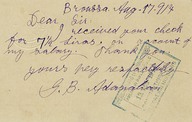 Broussa Aug. 17. 914
Dear Sir.
I received your check
for 7½ liras. on account of
my salary. Thank you
yours very respectfully
G. B. Adanalian